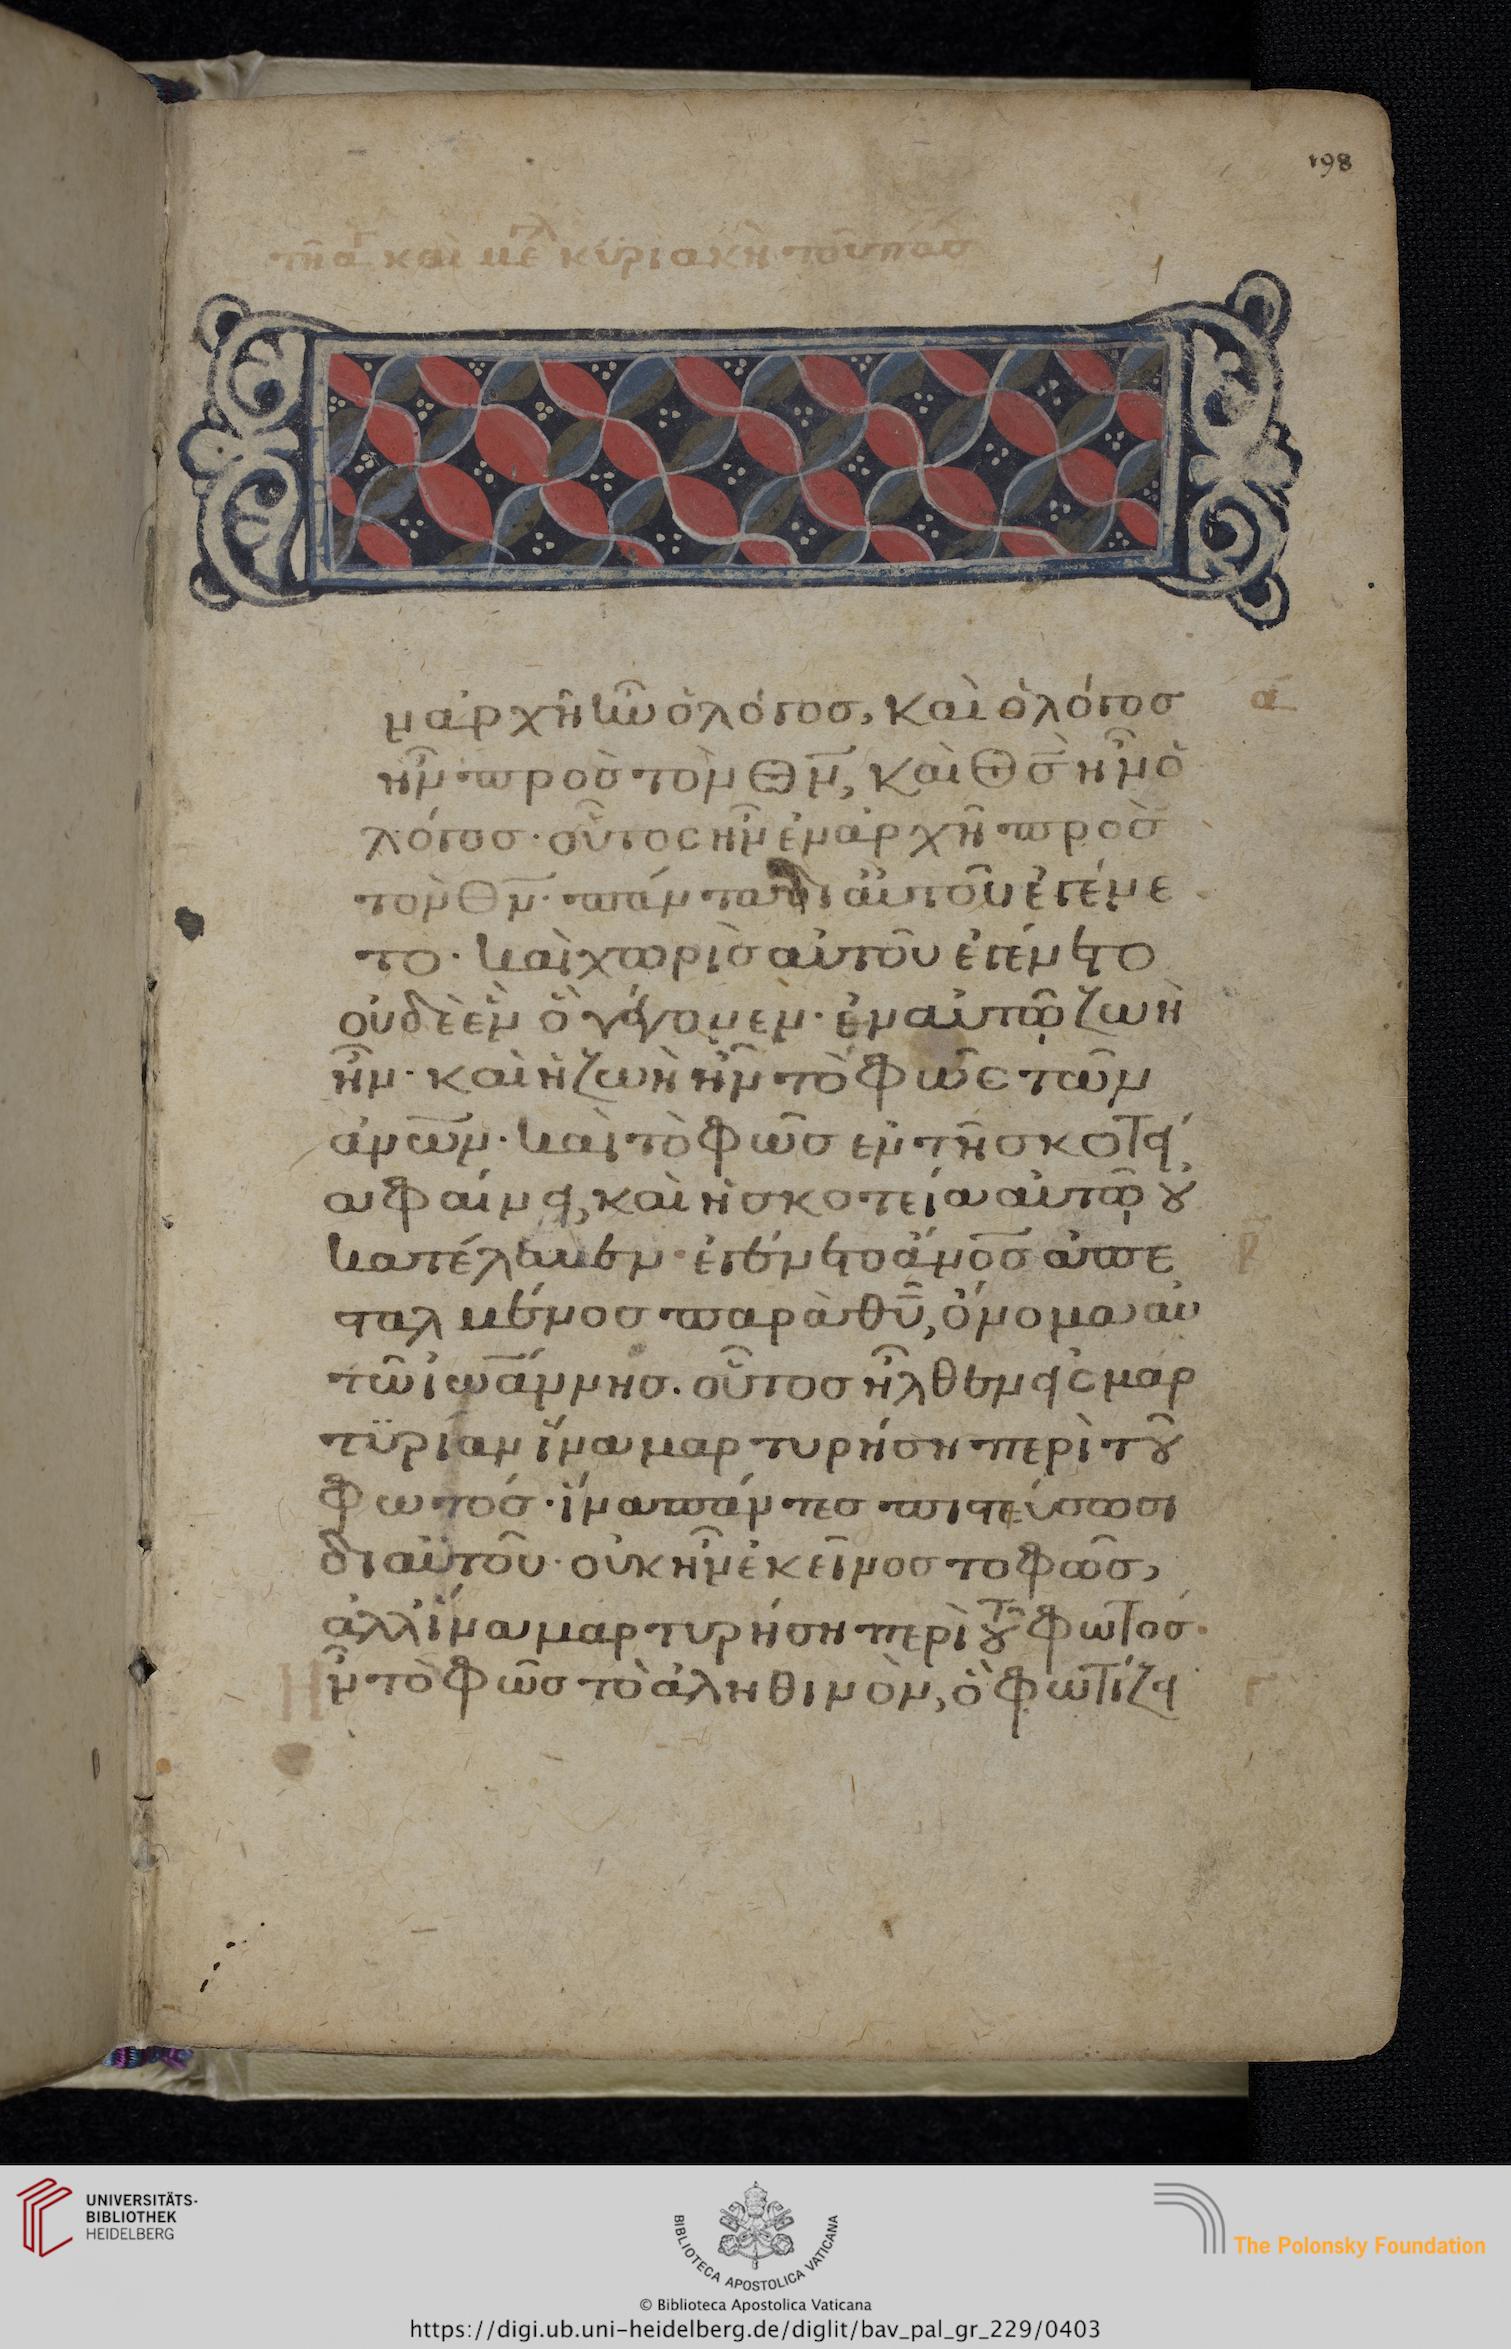 198
τῆ α καὶ με κυριακῆ τοῦ πάσ
ν ἀρχῆ ἦν ὁ λόγος, καὶ ὁ λόγος
α
ἦν πρὸς τὸν θν, καὶ θς ἦν ὁ
λόγος · οὗτος ἦν ἐν ἀρχῆ πρὸς
τὸν θν · πάντα δι αὐτοῦ ἐγένε
το · καὶ χωρὶς αὐτοῦ ἐγένετο
οὐδὲ ἓν ὃ γέγονεν · ἐν αὐτῷ ζωὴ
ἦν · καὶ ἡ ζωὴ ἦν τὸ φῶς τῶν
ἀνων · καὶ τὸ φῶς ἐν τῆ σκοτεί
α φαίνει, καὶ ἡ σκοτεία αὐτῷ οὐ
κατέλαβεν · ἐγένετο ἄνος ἀπε
β
σταλμένος παρὰ θυ, ὄνομα αὐ
τῶ ἰωάννης. οὗτος ἦλθεν εἰς μαρ
τϋρίαν ἵνα μαρτυρήση περὶ τοῦ
φωτός · ἵνα πάντες πιστεύσωσι
δι αὐτοῦ · οὐκ ἦν ἐκεῖνος το φῶς,
ἀλλ ἵνα μαρτυρήση περὶ τοῦ φωτός ·
Ἦν τὸ φῶς τὸ ἀληθινὸν, ὃ φωτίζει
γ
UNIVERSITÄTS-
BIBLIOTHEK
HEIDELBERG
BIBLIOTECA APOSTOLICA VATICANA
The Polonsky Foundation
© Biblioteca Apostolica Vaticana
https://digi.ub.uni-heidelberg.de/diglit/bav_pal_gr_229/0403